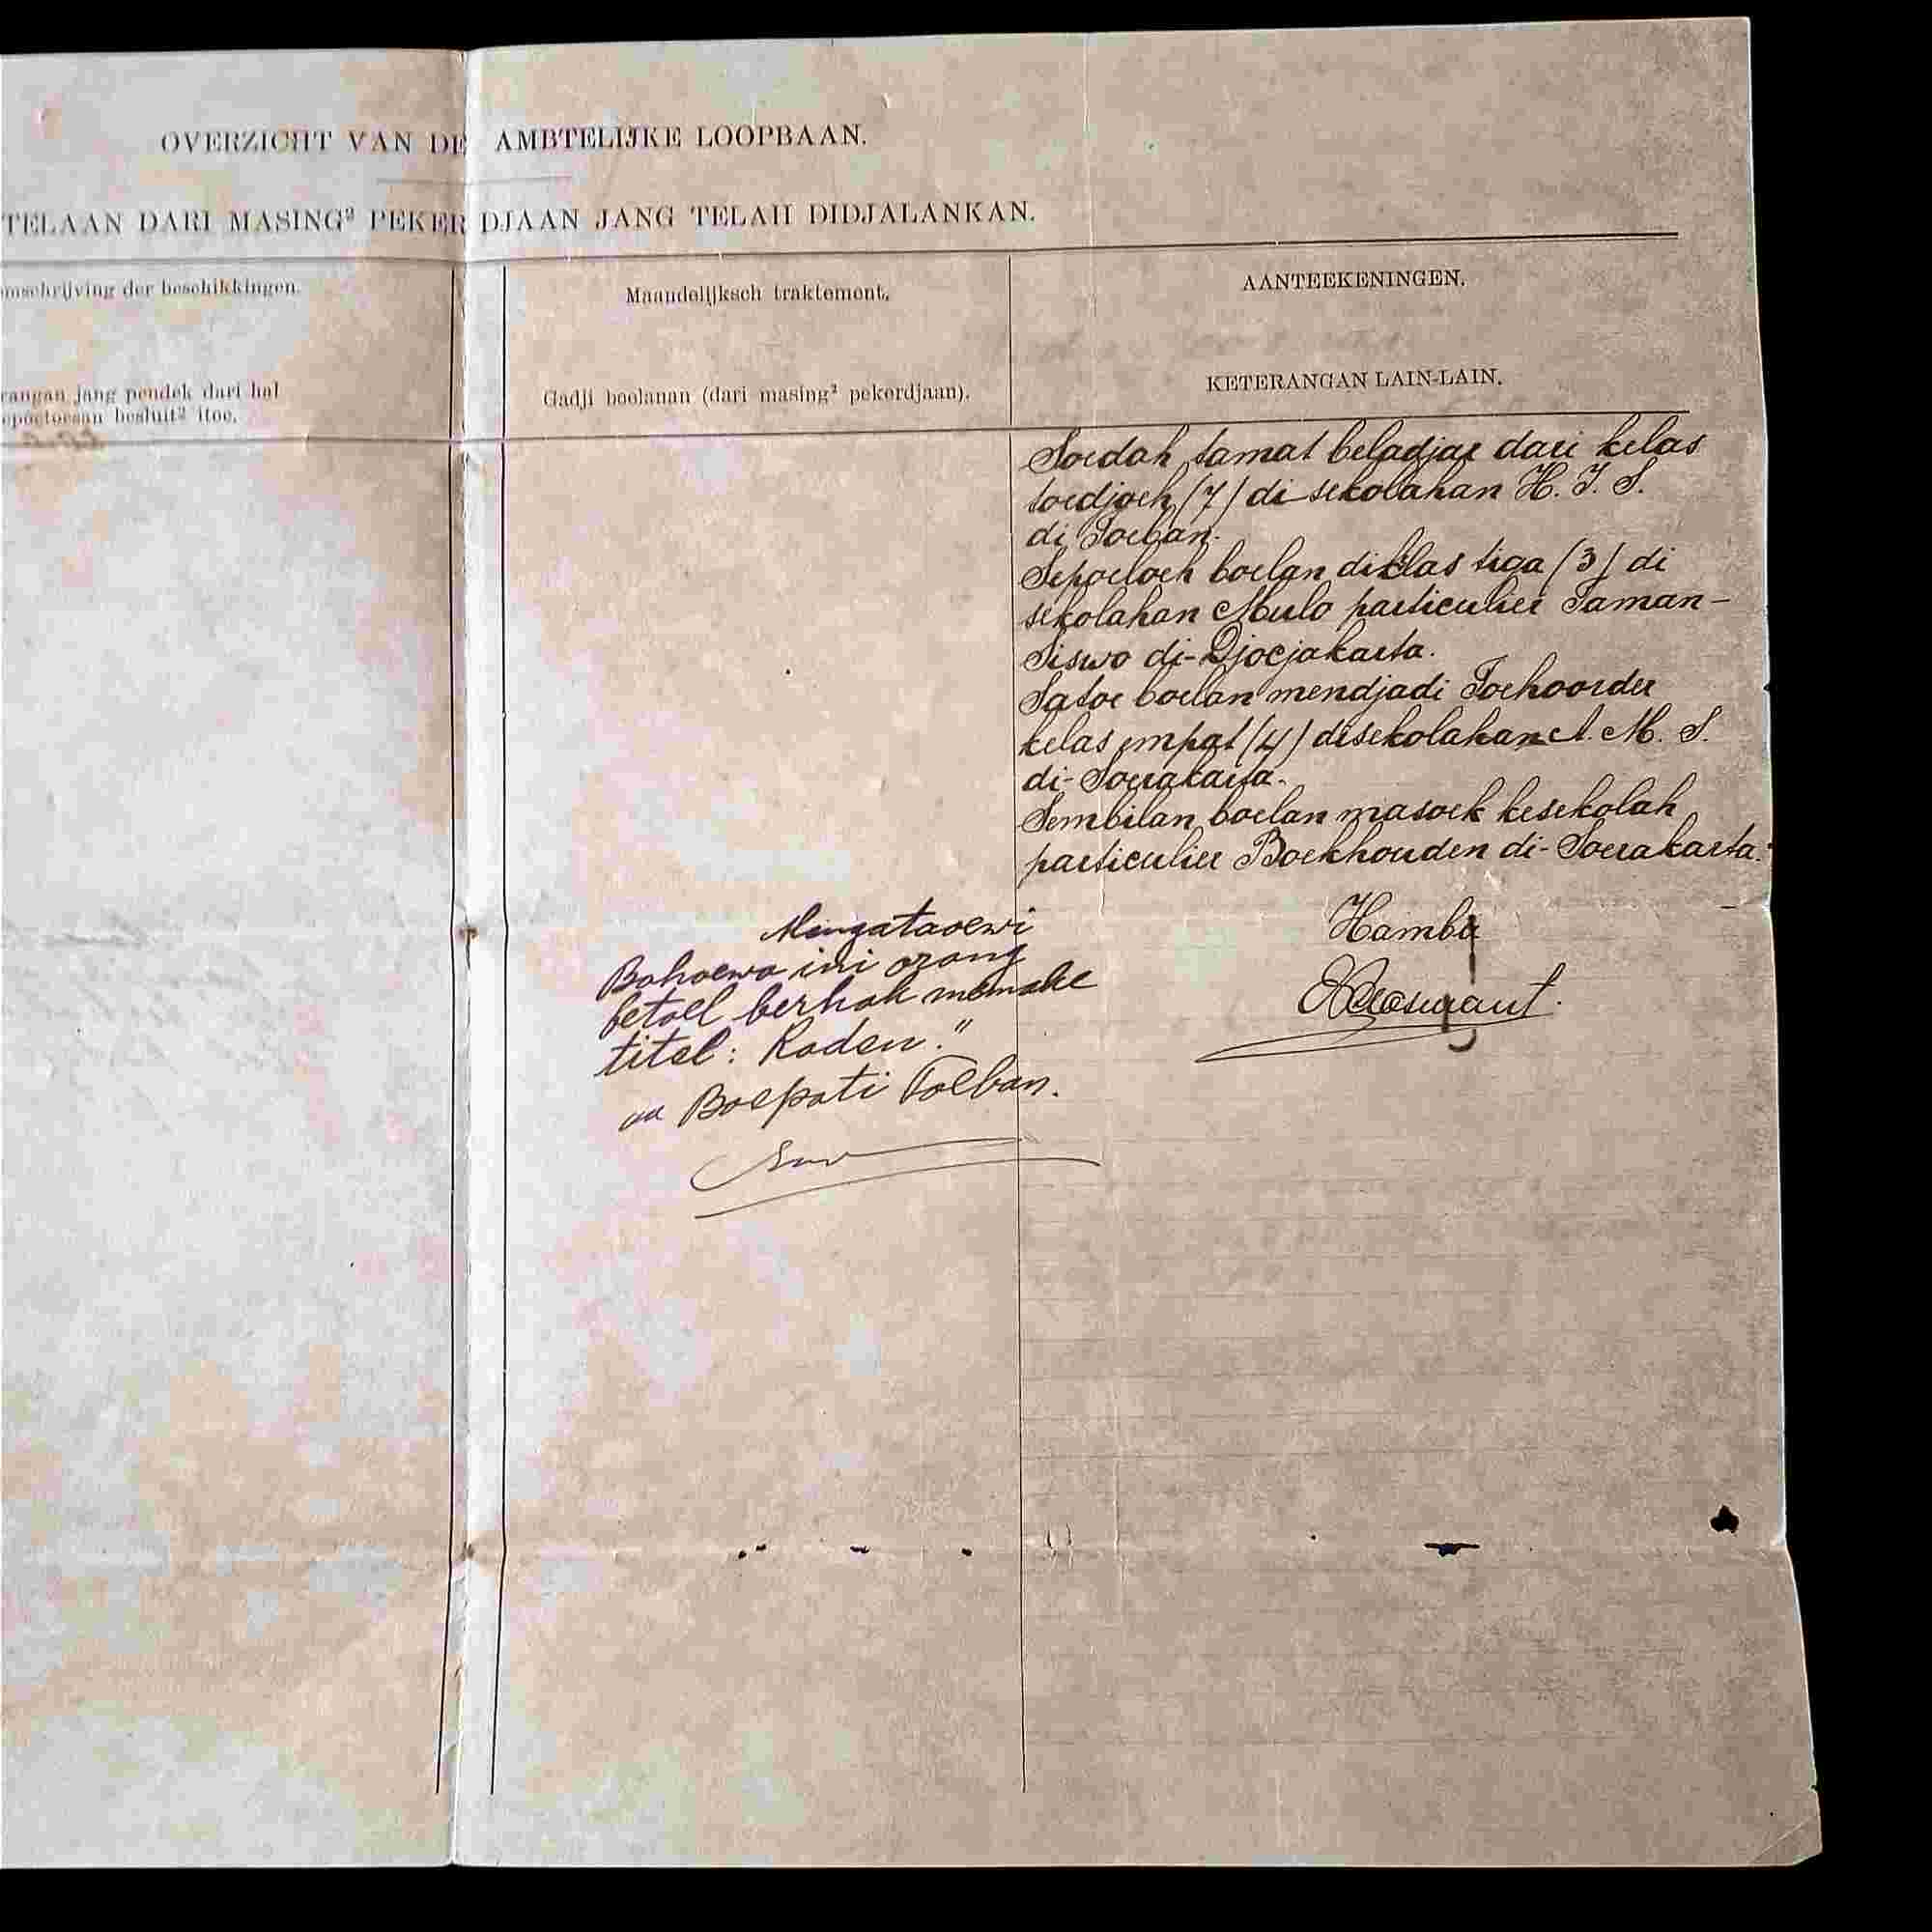 OVERZICHT VAN DE AMBTELIJKE LOOPBAAN.
TELAAN DARI MASING² PEKERDJAAN JANG TELAH DIDJALANKAN.
omschrijving der beschikkingen.
Maandelijksch traktement.
AANTEEKENINGEN.
rangan jang pendek dari hal
epoetoesan besluit² itoe.
Gadji boelanan (dari masing² pekerdjaan).
KETERANGAN LAIN-LAIN.
Soedah tamat beladjar dari kelas
toedjoeh (7) di sekolahan H. I. S.
di Toeban.
Sepoeloeh boelan diklas tiga (3) di
sekolahan Mulo particulier Taman-
Siswo di-Djocjakarta.
Satoe boelan mendjadi Toehoorder
kelas empat (4) disekolahan A. M. S.
di-Soerakarta.
Sembilan boelan masoek kesekolah
particulier Boekhouden di-Soerakarta.
Hamba
Mengataoewi
Bahoewa ini orang
betoel berhak memake
titel: Raden."
Boepati Toeban.